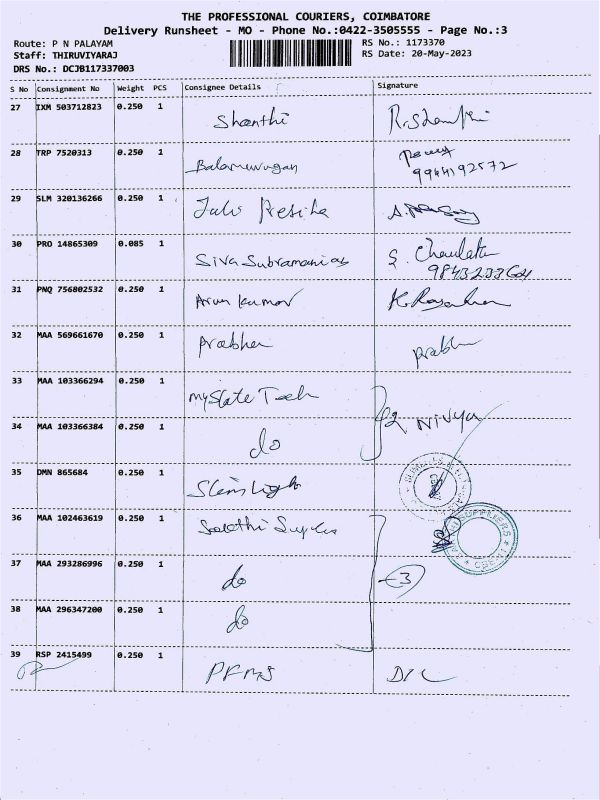 THE PROFESSIONAL COURIERS, COIMBATORE
Delivery Runsheet - MO - Phone No.:0422-3505555 - Page No.:3
Route: P N PALAYAM
RS No.: 1173370
Staff: THIRUVIYARAJ
RS Date: 20-May-2023
DRS No.: DCJB117337003
S No Consignment No Weight PCS Consignee Details Signature
27 IXM 503712823 0.250 1 Shanthi
28 TRP 7520313 0.250 1 Balamurugan
9944192572
29 SLM 320136266 0.250 1
30 PRO 14865309 0.085 1 Siva Subramanian
31 PNQ 756802532 0.250 1 Arun Kumar
32 MAA 569661670 0.250 1 Prabha
33 MAA 103366294 0.250 1 myState Tech
34 MAA 103366384 0.250 1 do 2 Nivya
35 DMN 865684 0.250 1
36 MAA 102463619 0.250 1
37 MAA 293286996 0.250 1 do 3
38 MAA 296347200 0.250 1 do
39 RSP 2415499 0.250 1 PFMS D/C